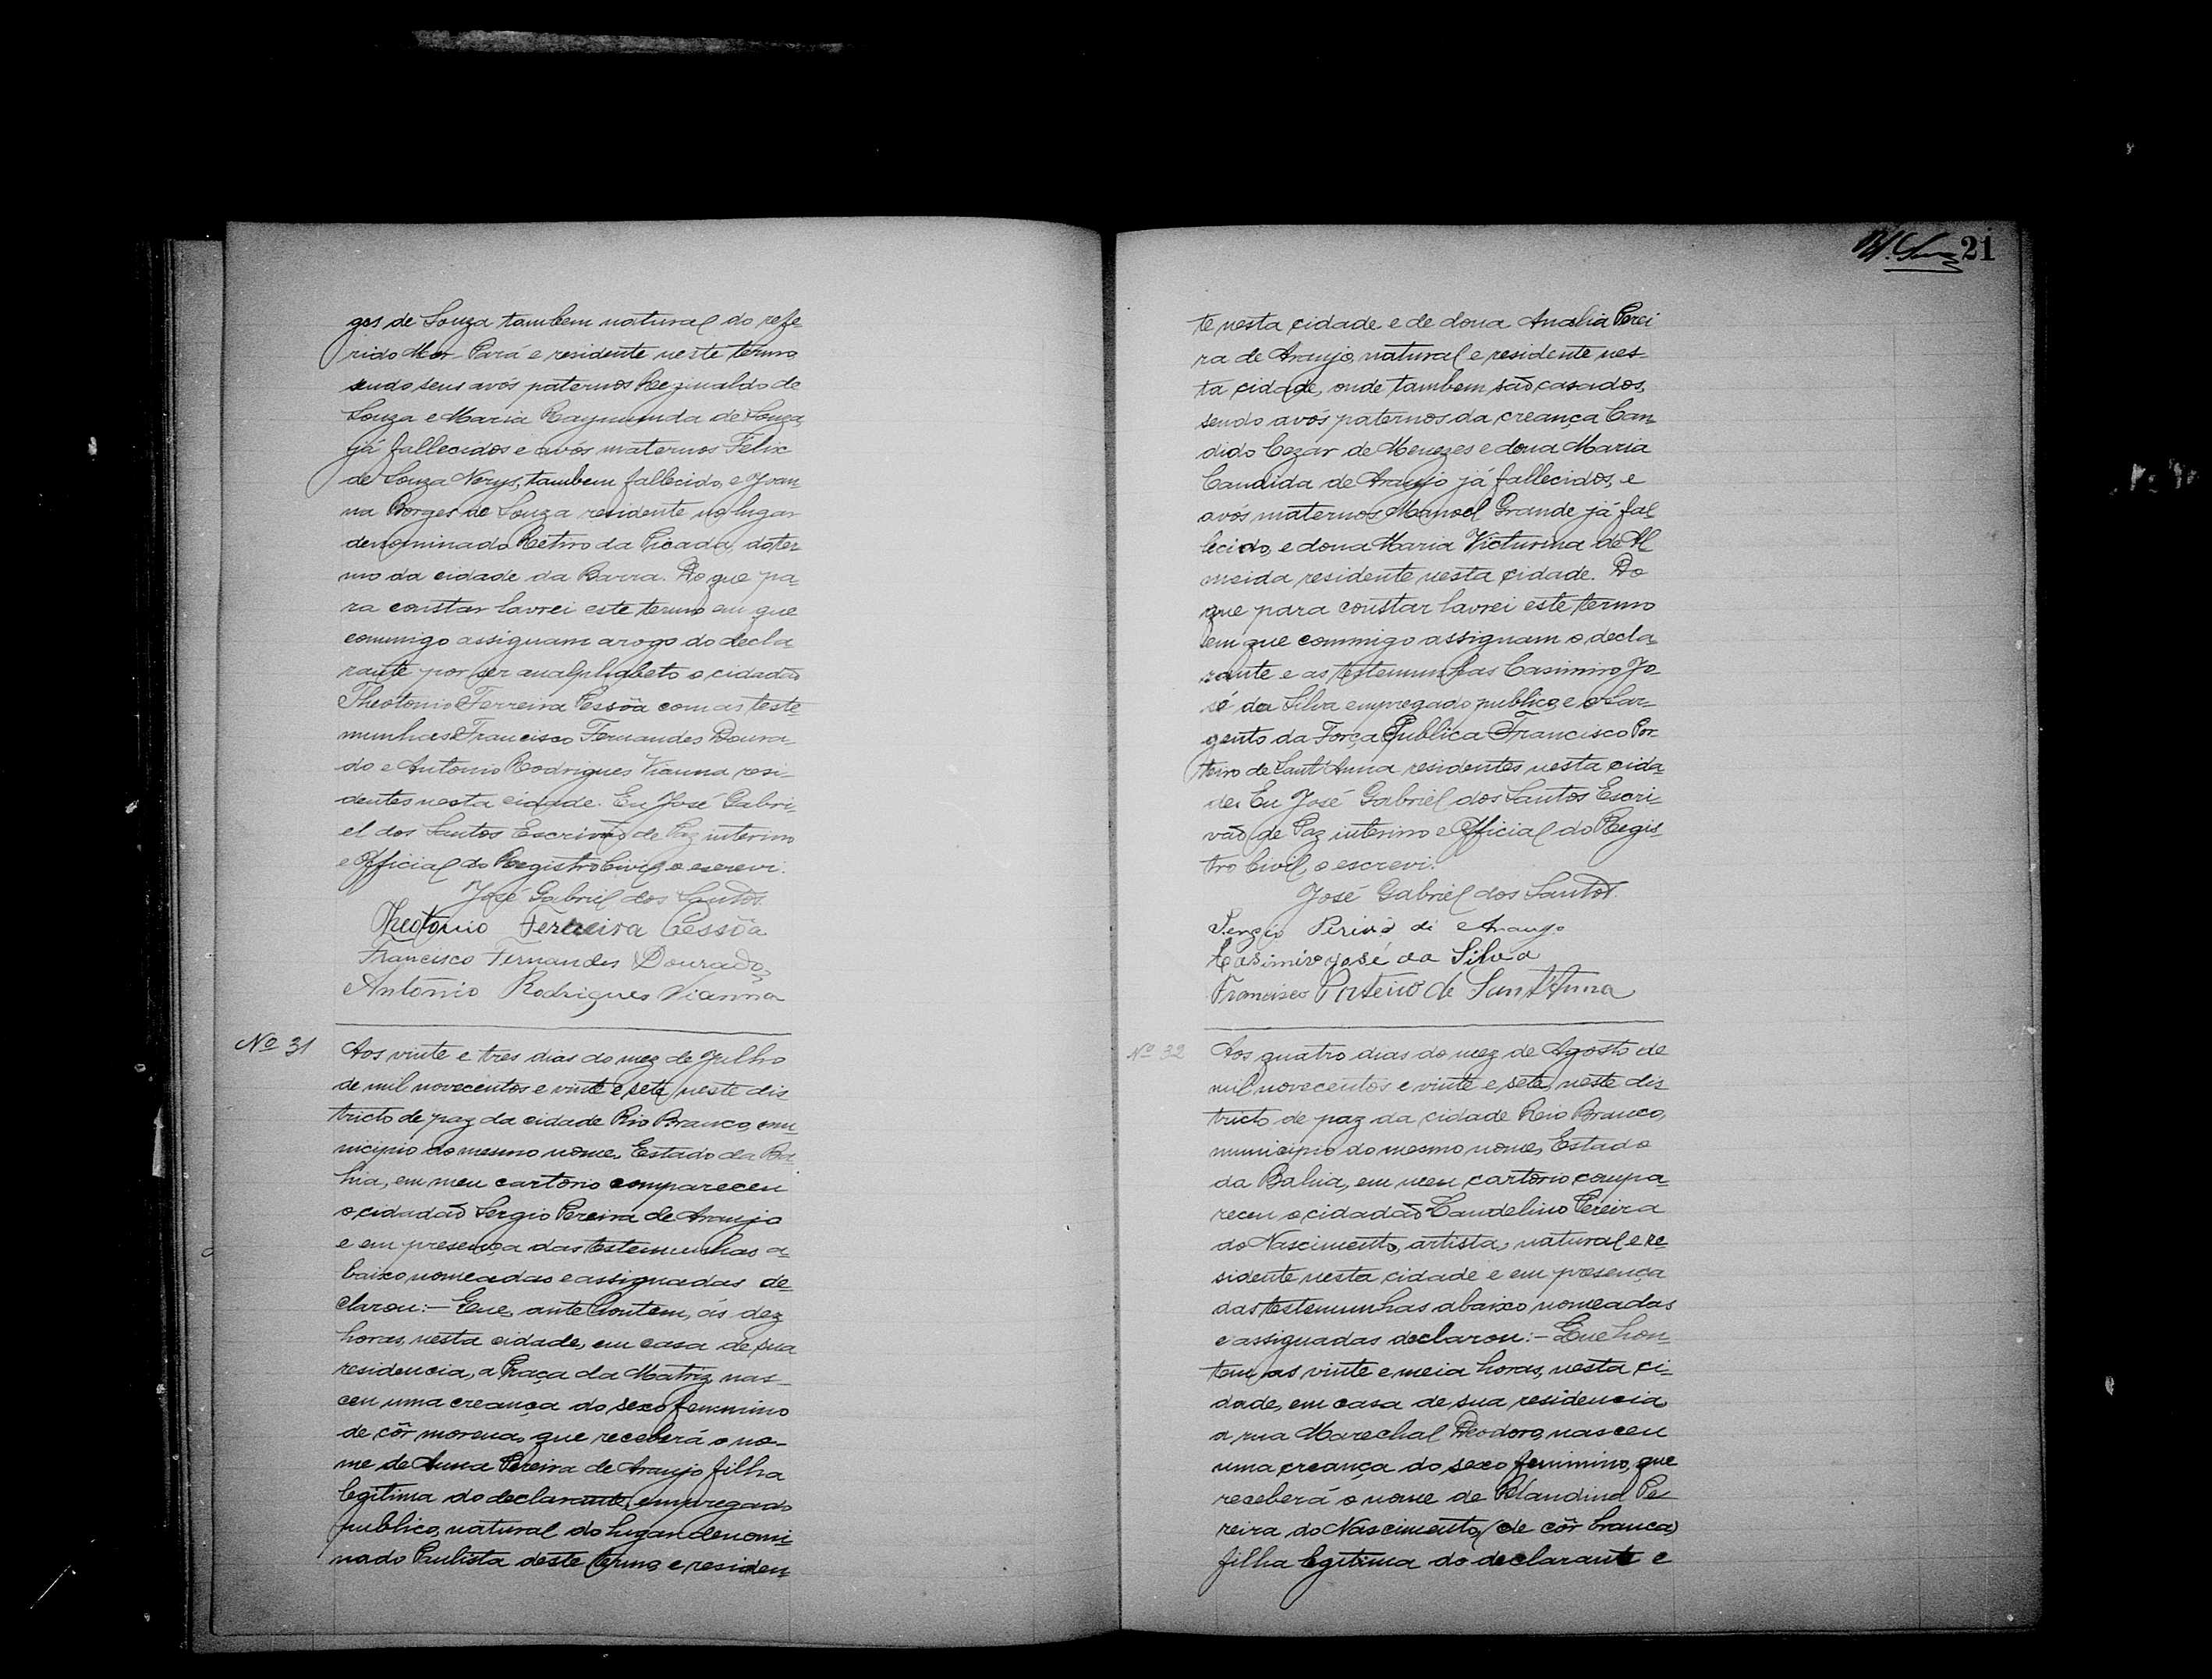 gos de Souza tambem natural do refe-
rido Mor-Pará e residente neste termo
sendo seus avós paternos Reginaldo de
Souza e Maria Raymunda de Souza,
já fallecidos e avós maternos Felix
de Souza Nerys, tambem fallecido, e Joan-
na Borges de Souza residente no lugar
denominado Retiro da Picada, do ter-
mo da cidade da Barra. Do que pa-
ra constar lavrei este termo em que
commigo assignam arogo do decla-
rante por ser analphabeto o cidadão
Theotonio Ferreira Pessôa com as teste-
munhas Francisco Fernandes Doura-
do e Antonio Rodrigues Vianna resi-
dentes nesta cidade. Eu José Gabri-
el dos Santos Escrivão de Paz interino
e Official do Registro Civil, o escrevi.
José Gabriel dos Santos.
Theotonio Ferreira Pessôa
Francisco Fernandes Dourado
Antonio Rodrigues Vianna
Nº 31
Aos vinte e tres dias do mez de Julho
de mil novecentos e vinte e sete, neste dis-
tricto de paz da cidade Rio Branco, mu-
nicipio do mesmo nome, Estado da Ba-
hia, em meu cartorio compareceu
o cidadão Sergio Pereira de Araujo
e em presença das testemunhas a-
baixo nomeadas e assignadas de-
clarou:- Que, ante hontem, ás dez
horas, nesta cidade, em casa de sua
residencia, a Praça da Matriz nas-
ceu uma creança do sexo feminino
de côr morena, que receberá o no-
me de Anna Pereira de Araujo filha
legitima do declarante, empregado
publico, natural do lugar denomi-
nado Paulista deste termo, e residen-
21
te nesta cidade e de dona Analia Perei
ra de Araujo, natural e residente nes-
ta cidade, onde tambem são casados,
sendo avós paternos da creança Can-
dido Cezar de Menezes e dona Maria
Candida de Araujo já fallecidos, e
avós maternos Manoel Grande já fal-
lecido, e dona Maria Victurina de Al-
meida residente nesta cidade. Do
que para constar lavrei este termo
em que commigo assignam o decla-
rante e as testemunhas Casimiro Jo-
sé da Silva empregado publico, e o Sar-
gento da Força Publica Francisco Por-
teiro de Sant'Anna residentes nesta cida-
de. Eu José Gabriel dos Santos Escri-
vão de Paz interino e Official do Regis-
tro Civil, o escrevi.
José Gabriel dos Santos.
Sergio Pirira di Araujo
Casimiro José da Silva
Francisco Porteiro de Sant'Anna
Nº 32
Aos quatro dias do mez de Agosto de
mil novecentos e vinte e sete, neste dis-
tricto de paz da cidade Rio Branco,
municipio do mesmo nome, Estado
da Bahia, em meu cartorio compa-
receu o cidadão Candelino Pereira
do Nascimento, artista, natural e re-
sidente nesta cidade e em presença
das testemunhas abaixo nomeadas
e assignadas declarou:- Que hon-
tem as vinte e meia horas, nesta ci-
dade, em casa de sua residencia,
a rua Marechal Deodoro, nasceu
uma creança do sexo feminino, que
receberá o nome de Blandina Pe-
reira do Nascimento, (de côr branca)
filha legitima do declarante e